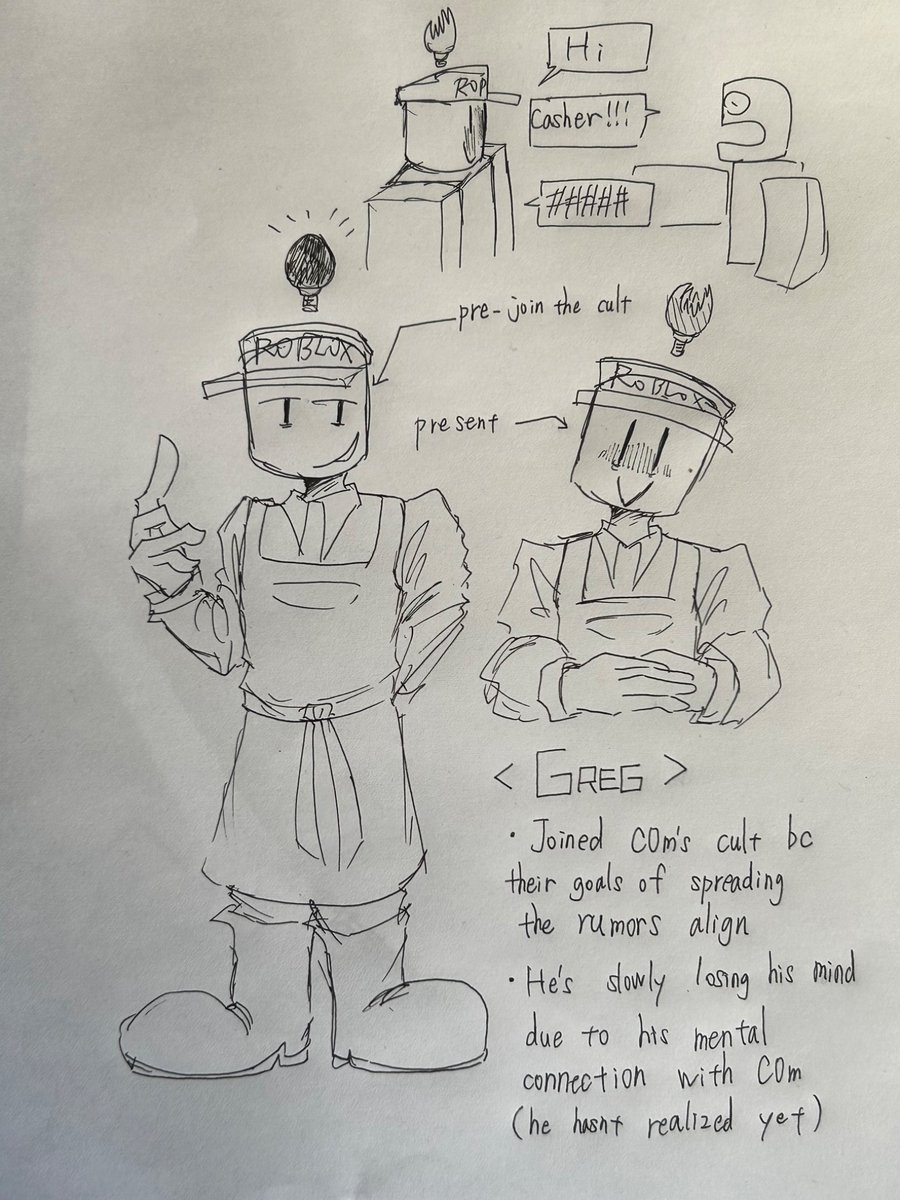 ROP
Hi
Casher!!!
#####
pre-join the cult
ROBLOX
ROBLOX
present
< GREG >
· Joined C0m's cult bc
their goals of spreading
the rumors align
· He's slowly losing his mind
due to his mental
connection with C0m
(he hasnt realized yet)